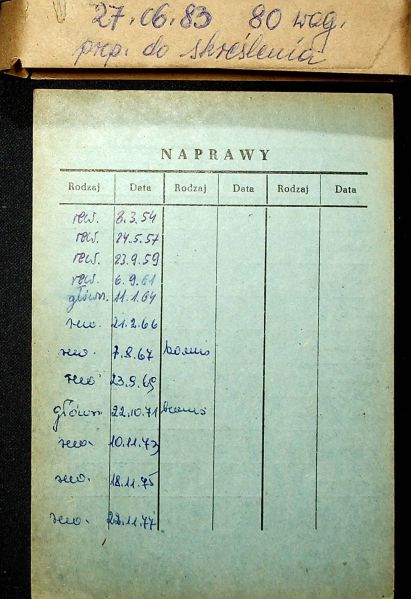 27.06.83 80 wag.
prep. do skreślenia
NAPRAWY
Rodzaj Data Rodzaj Data Rodzaj Data
rew. 8.3.54
rew. 24.5.57
rew. 23.9.59
rew. 6.9.61
główn. 11.1.64
21.2.66
7.8.67
23.9.69
główn 22.10.71
10.11.73
18.11.75
22.11.77